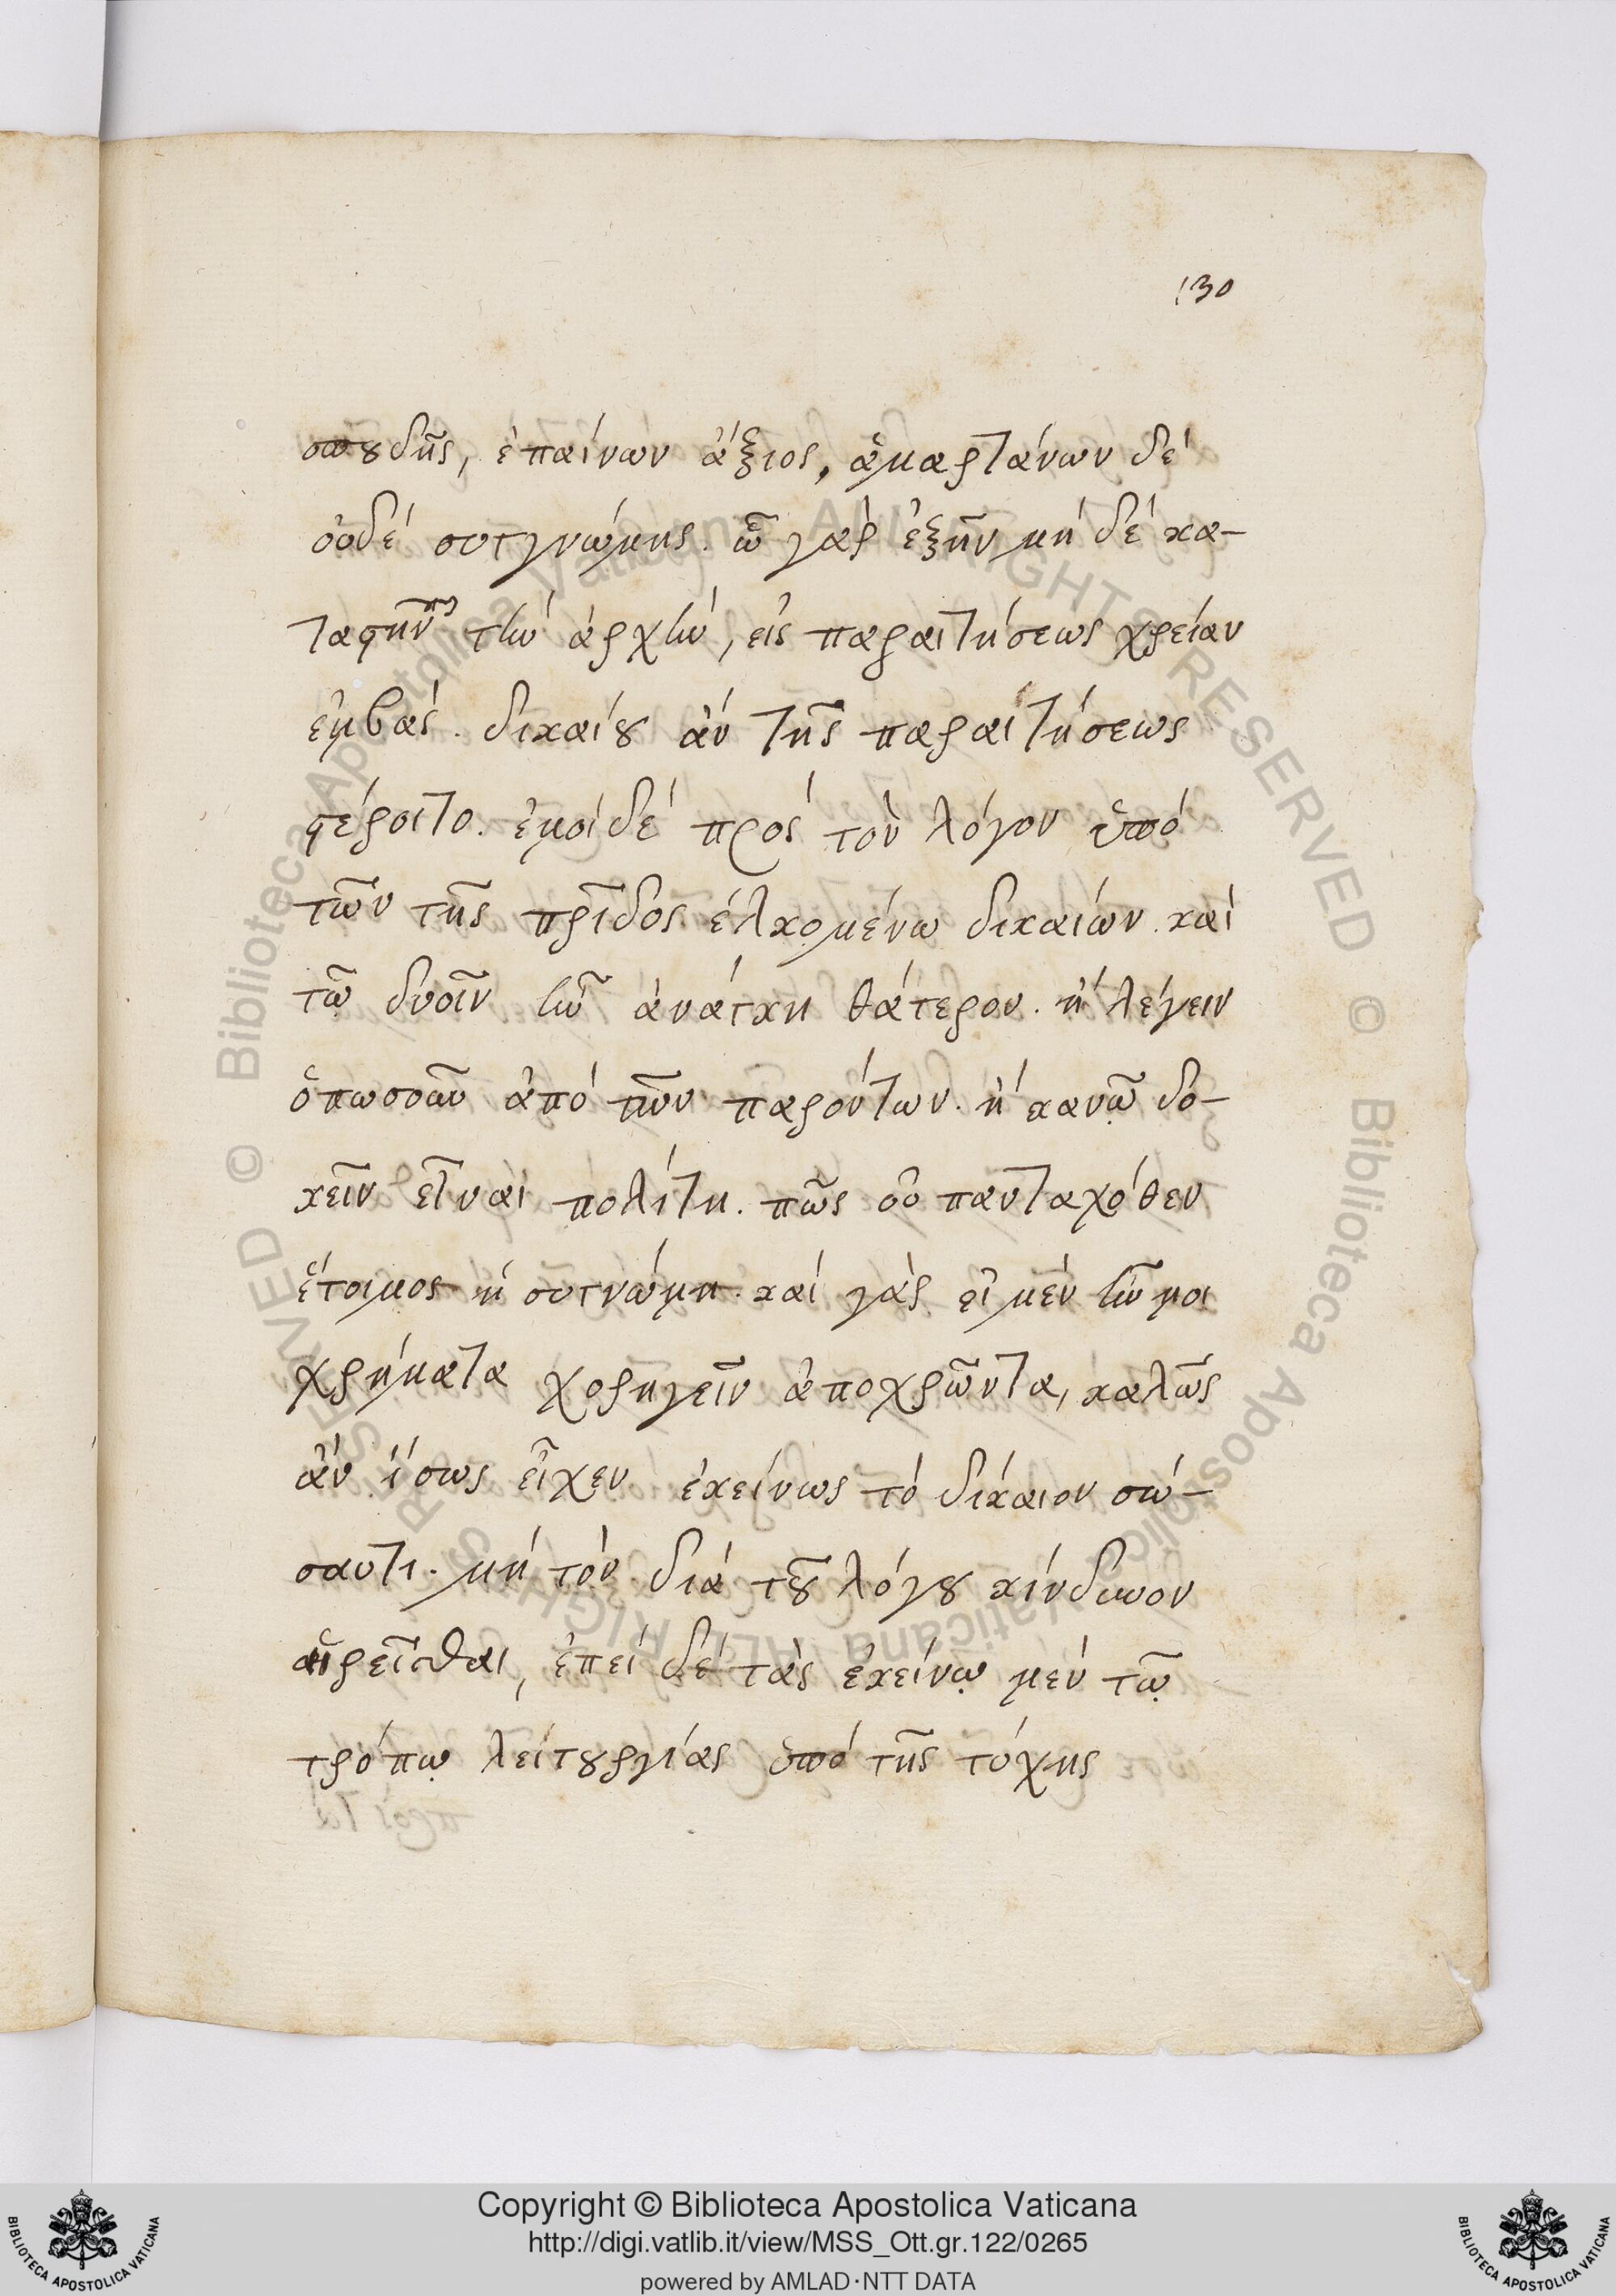 130
σπουδῆς, ἐπαίνων ἄξιος, ἁμαρτάνων δὲ
οὐδὲ συγγνώμης. ᾧ γὰρ ἐξῆν μὴ δὲ κα-
τὴν ἀρχὴν, εἰς παραιτήσεως χρείαν
ἐμβὰς. δικαίου ἂν τῆς παραιτήσεως
φέροιτο. ἐμοὶ δὲ πρὸς τὸν λόγον ὑπὸ
τῶν τῆς πρ̅ίδος ἑλκομένω δικαίων. καὶ
τῶ δυοῖν ἦν ἀνάγκη θάτερον. ἢ λέγειν
ὁπωσοῦν ἀπὸ τῶν παρόντων. ἢ κακῶ δο-
κεῖν εἶναι πολίτη. πῶς οὐ πανταχόθεν
ἕτοιμος ἡ συγνώμη. καὶ γὰρ εἰ μὲν ἦν μοι
χρήματα χορηγεῖν ἀποχρῶντα, καλῶς
ἂν ἴσως εἶχεν ἐκείνως τὸ δίκαιον σώ-
σαντι. μὴ τὸν διὰ τοῦ λόγου κίνδυνον
αἱρεῖσθαι, ἐπεὶ δὲ τὰς ἐκείνῳ μὲν τῷ
τρόπῳ λειτουργίας ὑπὸ τῆς τύχης
Copyright © Biblioteca Apostolica Vaticana
http://digi.vatlib.it/view/MSS_Ott.gr.122/0265
powered by AMLAD·NTT DATA
BIBLIOTECA APOSTOLICA VATICANA
BIBLIOTECA APOSTOLICA VATICANA
© Biblioteca Apostolica Vaticana ALL RIGHTS RESERVED
© Biblioteca Apostolica Vaticana ALL RIGHTS RESERVED